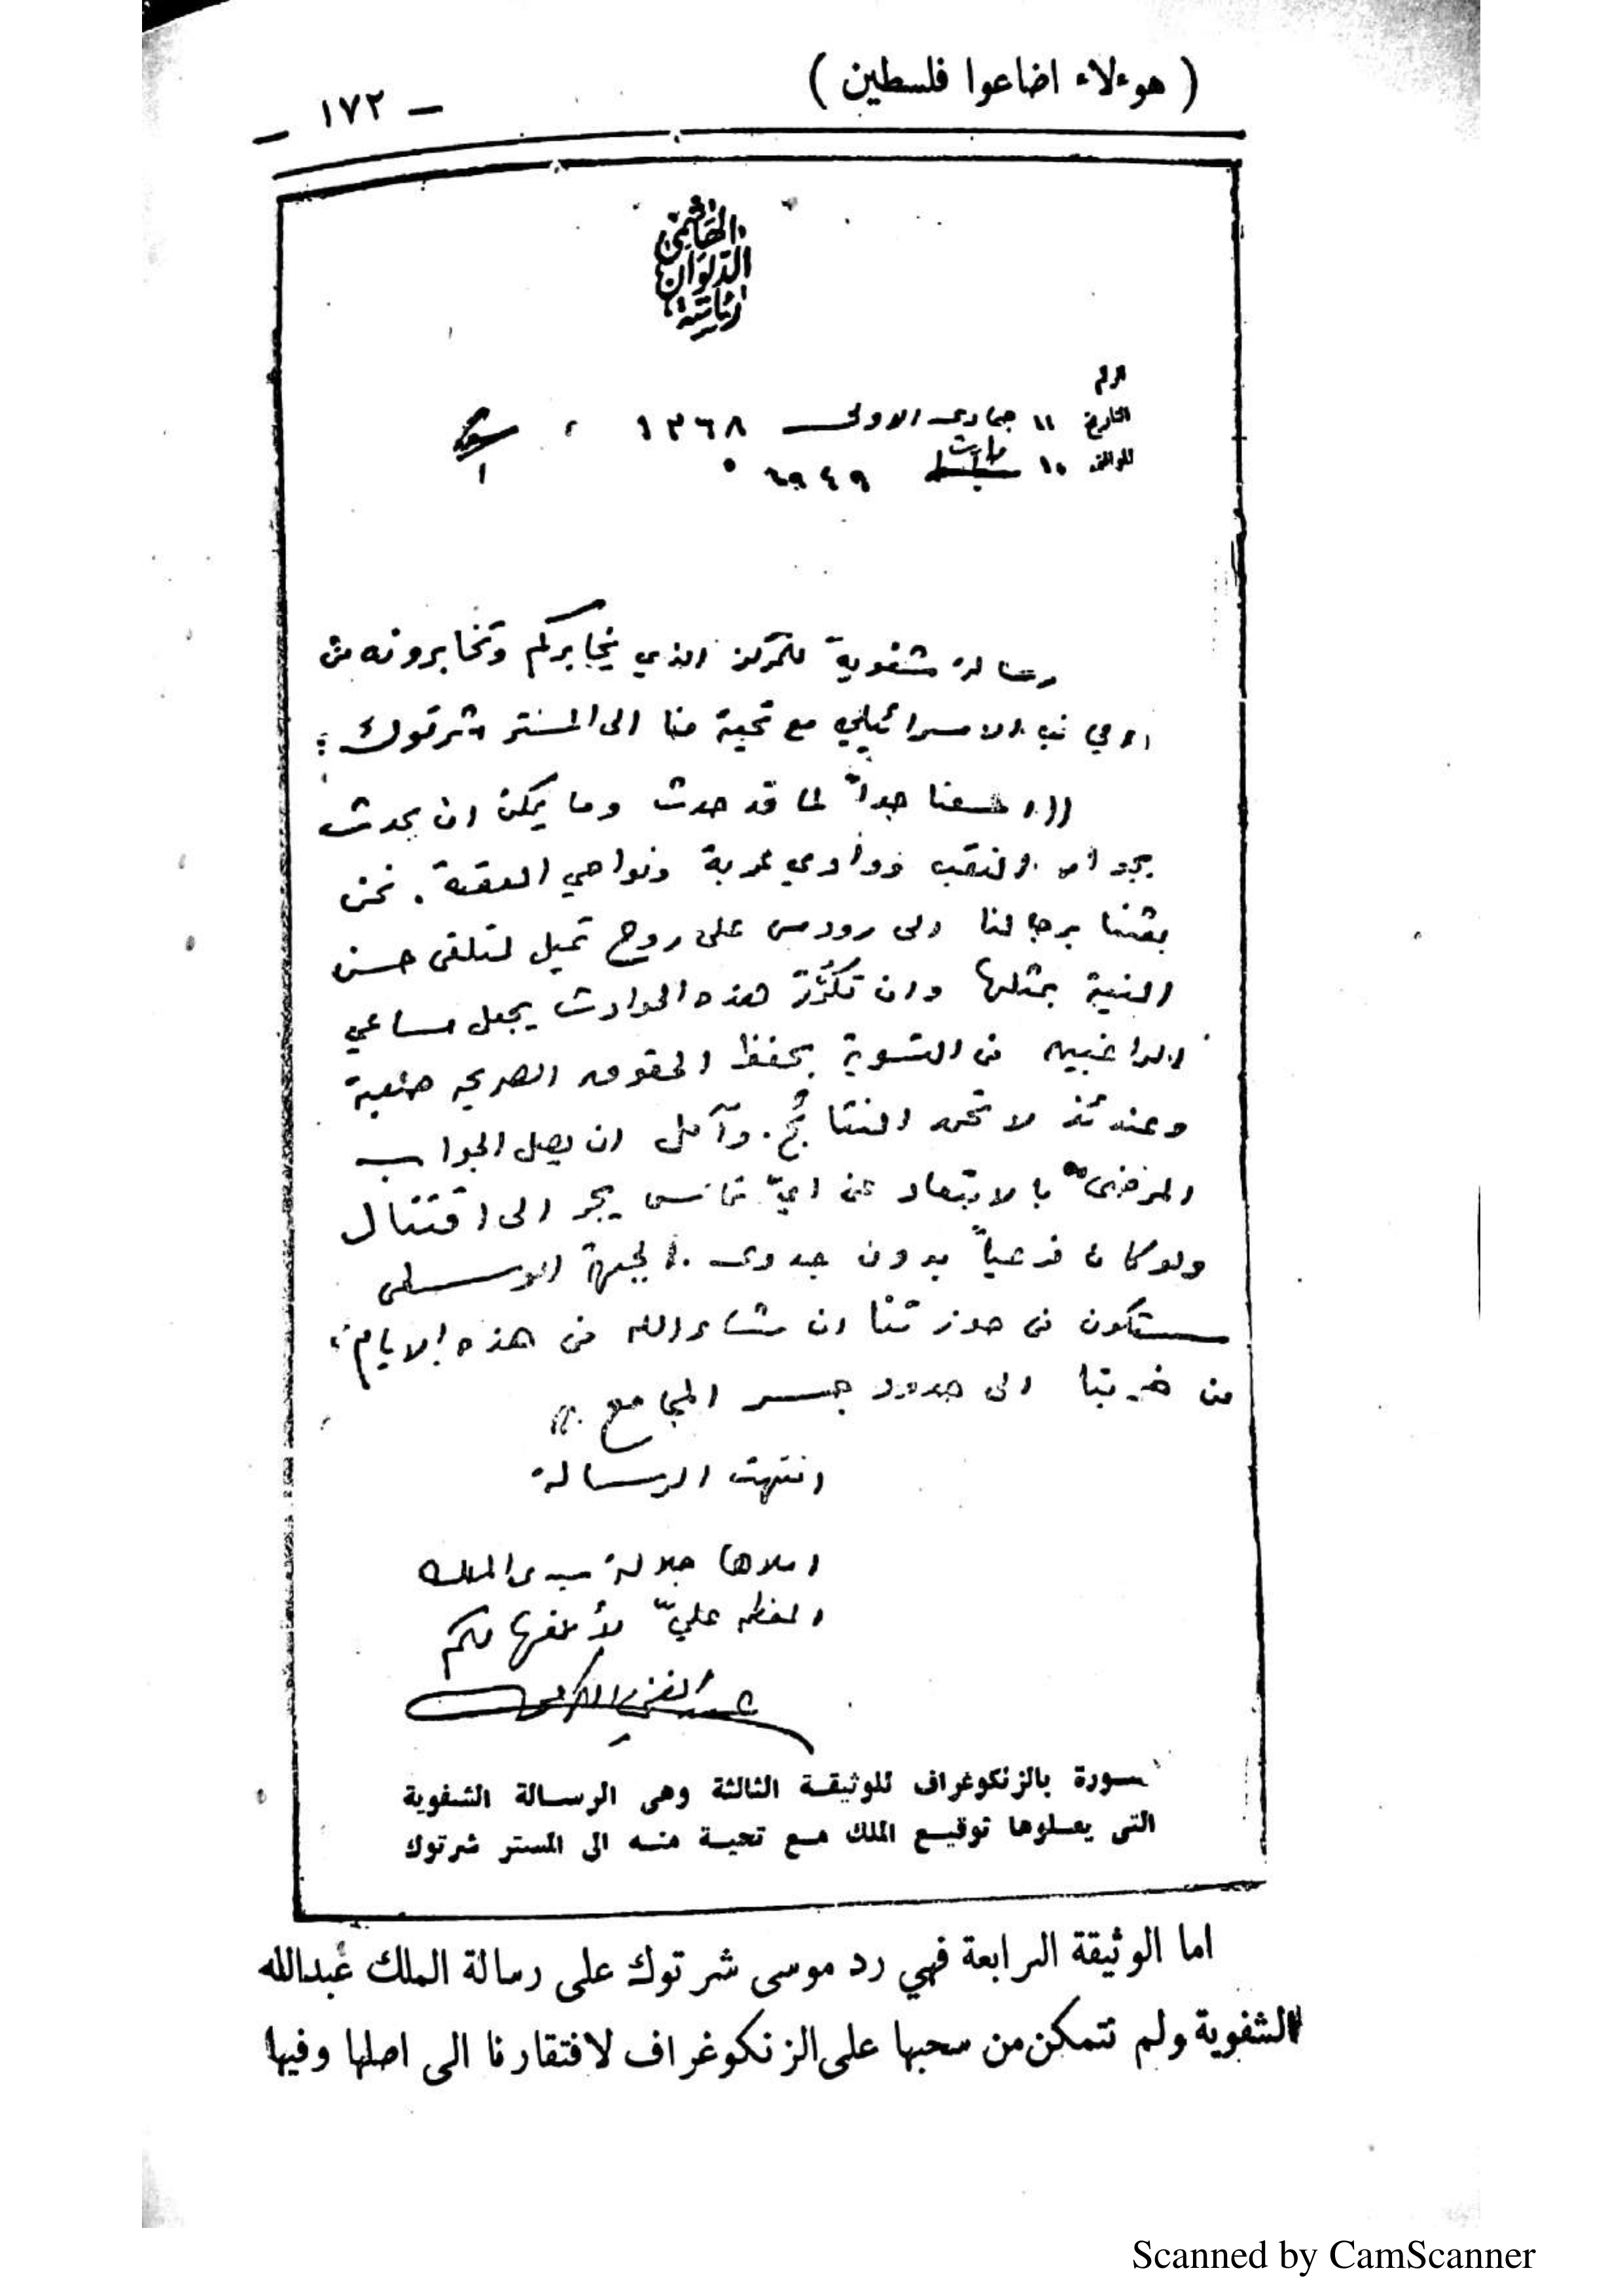 ( هوءلاء اضاعوا فلسطين )
— ١٧٢ —
الهاشمي
الديوان
رئاسة
الرقم
التاريخ ١١ جمادى الاولى ١٣٦٨
الموافق ١٠ مارت ١٩٤٩
رسالة شفوية للمركز الذي يخابركم وتخابرونه من
الجانب الاسرائيلي مع تحية منا الى المستر شرتوك :
((اسفنا جداً لما قد حدث وما يمكن ان يحدث
بجوار النقب ووادي عربة ونواحي العقبة . نحن
بعثنا برجالنا الى رودس على روح تميل لتلقي حسن
النية بمثلها وان تكرّر هذه الحوادث يجعل مساعي
الراغبين في التسوية بحفظ الحقوق الصريحه صعبة
وعندئذ لا تحمد النتائج . وآمل ان يصل الجواب
المرضيّ بالابتعاد عن ايّ تماس يجر الى اقتتال
ولو كان فرعياً بدون جدوى . الجبهة الوسطى
ستكون في حوزتنا ان شاء الله في هذه الايام ،
من الى حدود جسر المجامع . ))
انتهت الرسالة
املاها جلالة سيدي الملك
المعظم عليّ لأبلغها لكم
عبد الغني الكرمي
صورة بالزنكوغراف للوثيقة الثالثة وهى الرسالة الشفوية
التى يعلوها توقيع الملك مع تحية منه الى المستر شرتوك
اما الوثيقة الرابعة فهي رد موسى شرتوك على رسالة الملك عبدالله
الشفوية ولم نتمكن من سحبها على الزنكوغراف لافتقارنا الى اصلها وفيها
Scanned by CamScanner